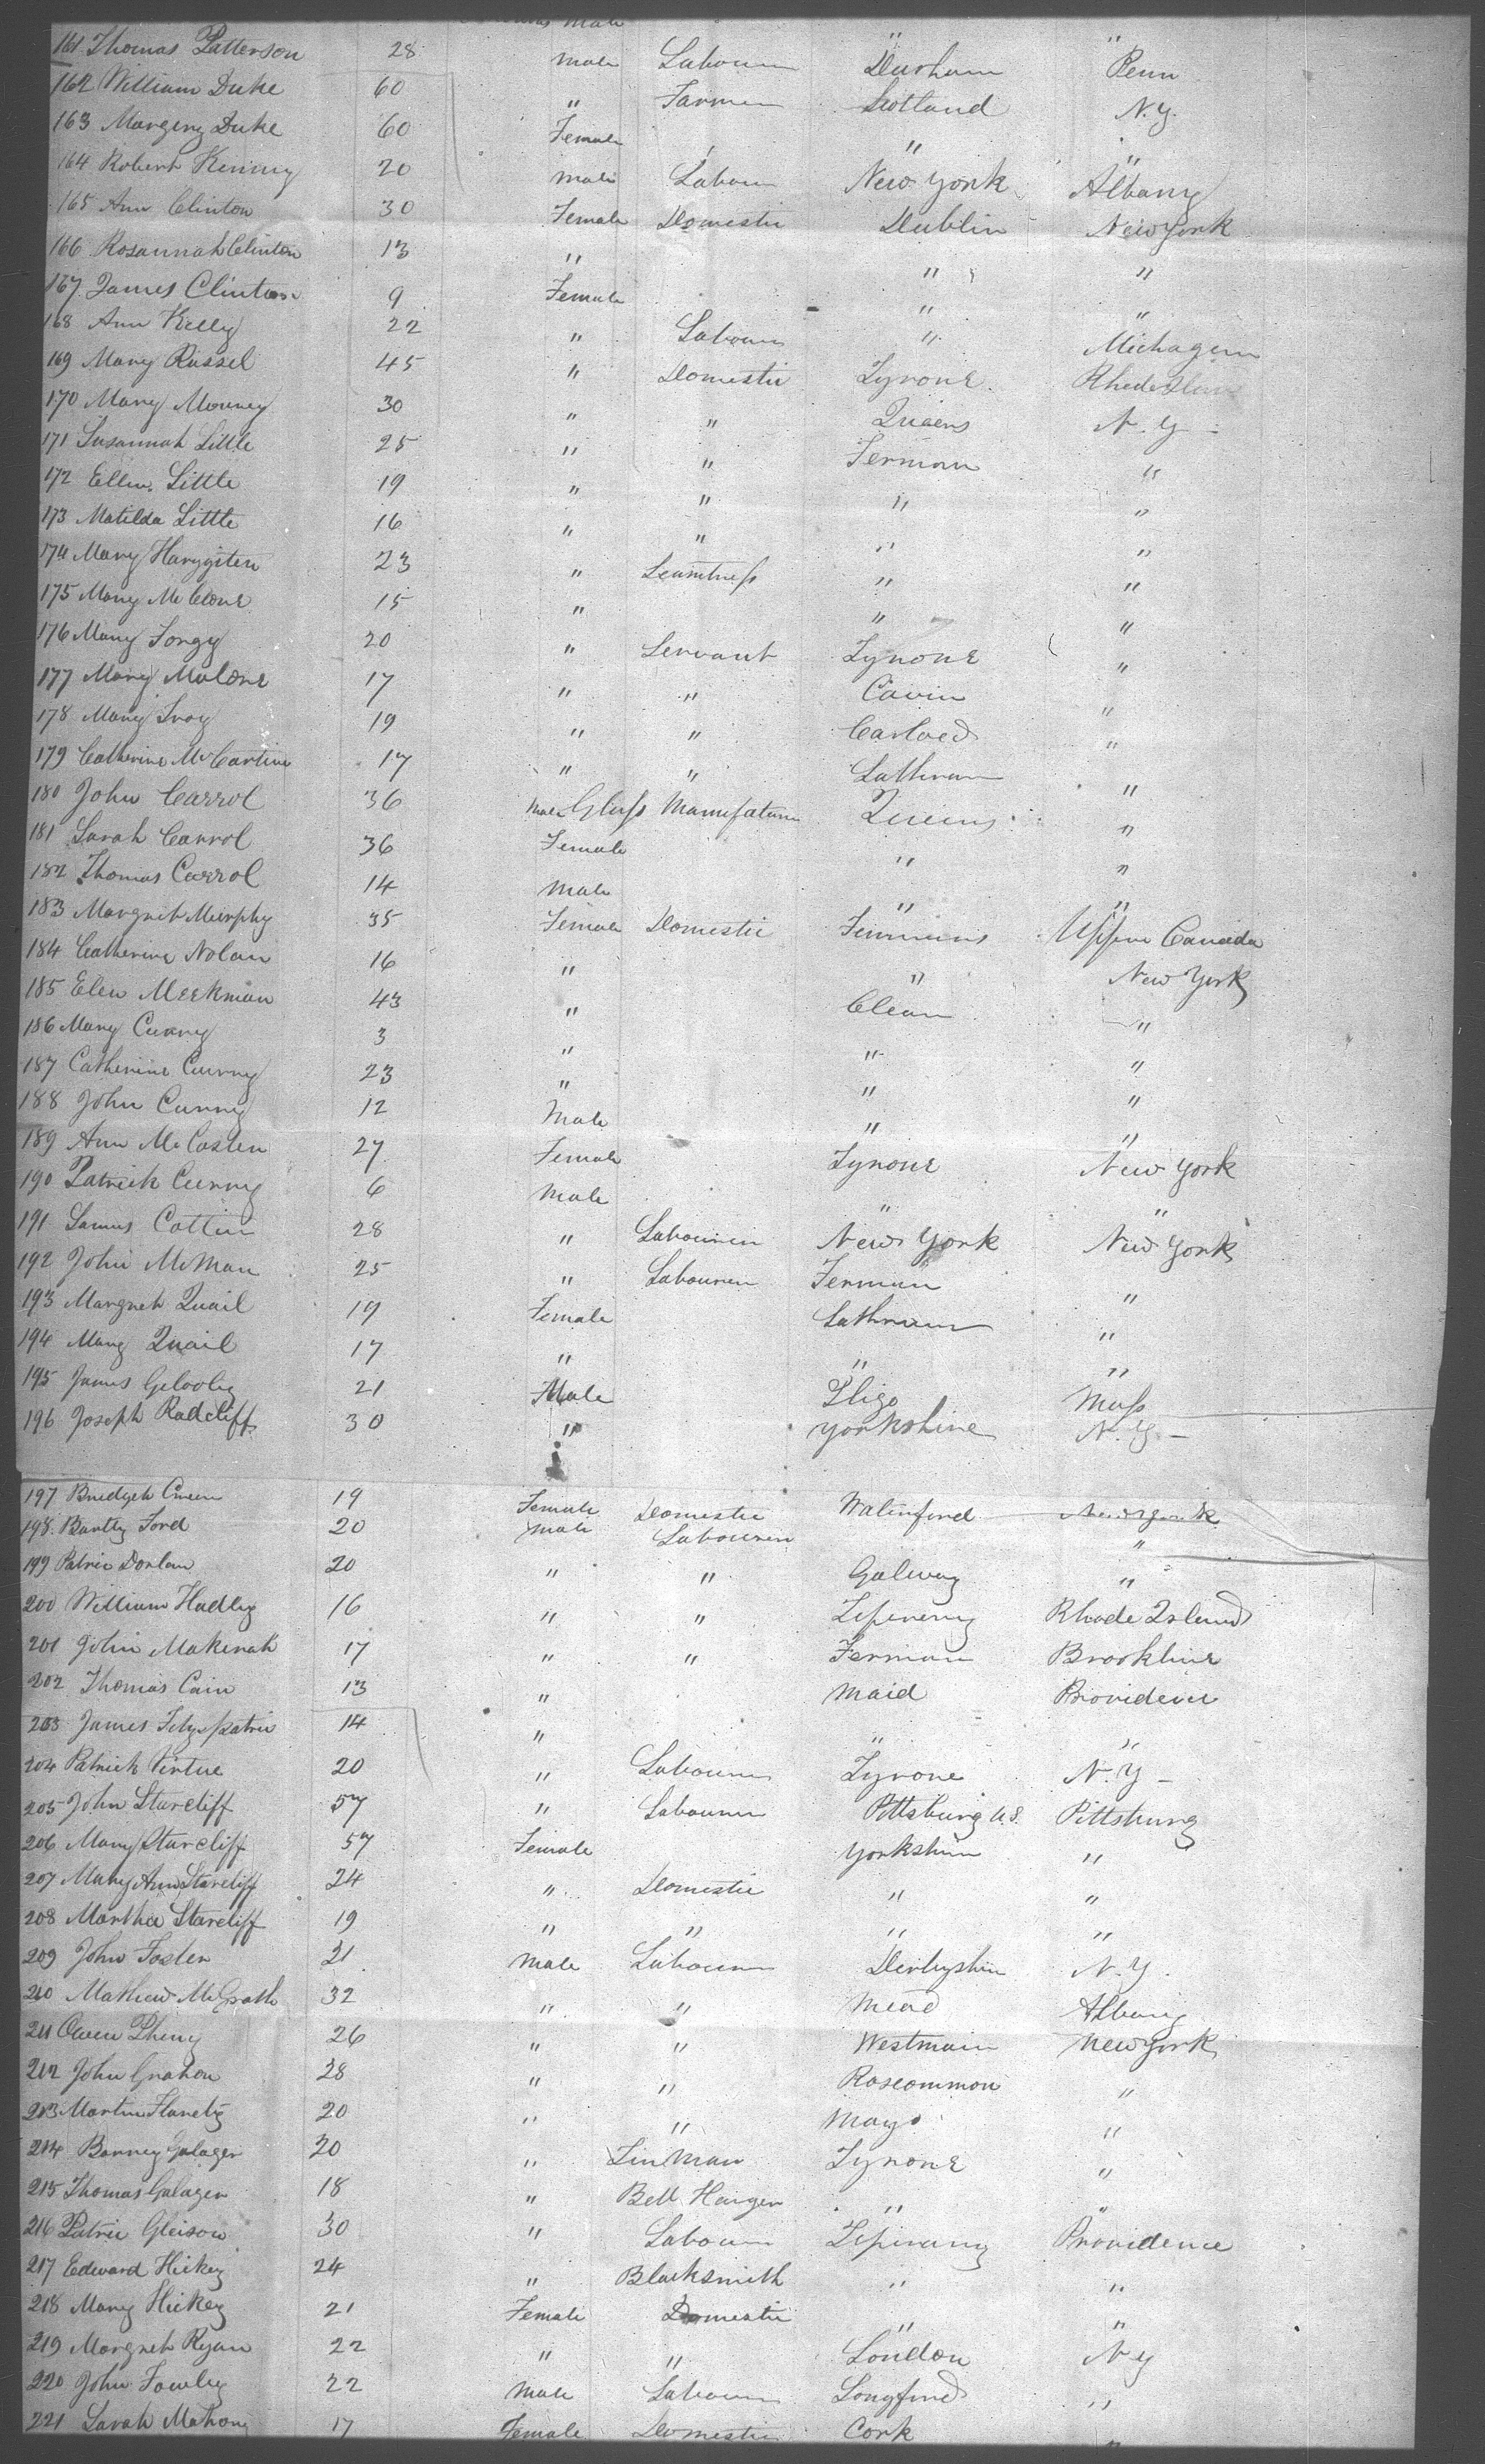 male
161 Thomas Patterson 28 male Labourer Durham Penn
162 William Duke 60 " Farmer Scotland N.Y.
163 Margery Duke 60 Female " "
164 Robert Kenny 20 male Labour New York Albany
165 Ann Clinton 30 Female Domestic Dublin New York
166 Rosannah Clinton 13 " " "
167 James Clinton 9 Female " "
168 Ann Kelly 22 " Labour " Michagem
169 Mary Russel 45 " Domestic Tyrone Rhode Islan
170 Mary Mooney 30 " " Queens N.Y
171 Susannah Little 25 " " Ferman "
172 Ellen Little 19 " " " "
173 Matilda Little 16 " " " "
174 Mary 23 " Seamtress " "
175 Mary McClone 15 " " "
176 Mary Torgy 20 " Servant Tyrone "
177 Mary Malone 17 " " Cavin "
178 Mary Ivoy 19 " " Carloed "
179 Catherine McCartin 17 " " Lathram "
180 John Carrol 36 male Glass Manufaturer Queens "
181 Sarah Carrol 36 Female " "
182 Thomas Carrol 14 male " "
183 Margret Murphy 35 Female Domestic Upper Canada
184 Catherine Nolan 16 " " New York
185 Elen Meekman 43 " Clear "
186 Mary Curry 3 " " "
187 Catherine Curry 23 " " "
188 John Curry 12 Male " "
189 Ann McCosten 27 Female Tyrone New York
190 Patrick Curry 6 male " "
191 James Cottin 28 " Labourer New York New York
192 John McMan 25 " Labourer Ferman "
193 Margret Quail 19 Female Lathram "
194 Mary Quail 17 " " "
195 James Gilooly 21 Male Sligo Mass
196 Joseph Radcliff 30 " Yorkshire N.Y.
197 Bridget Green 19 Female Domestic Waterford New York
198 Bartly Ford 20 male Labourer "
199 Patric Donlan 20 " " Galway "
200 William Hadley 16 " " Tiperery Rhode Island
201 John Makenah 17 " " Ferman Brookline
202 Thomas Cain 13 " Maid Providence
203 James Fitzpatric 14 " " "
204 Patrick Virtue 20 " Labourer Tyrone N.Y
205 John Starcliff 57 " Labourer Pittsburg U.S. Pittsburg
206 Mary Starcliff 57 Female Yorkshire "
207 Mary Ann Starcliff 24 " Domestic " "
208 Martha Starcliff 19 " " " "
209 John Foster 21 male Labourer Derbyshire N.Y.
210 Mathew McGrath 32 " " Mead Albany
211 Owen Pheny 26 " " Westmain New York
212 John Grahon 28 " " Roscommon "
213 Martin Flanety 20 " " Mayo "
214 Barney Galager 20 " Tin Man Tyrone "
215 Thomas Galager 18 " Bell Hanger " "
216 Patric Gleison 30 " Labour Tiperary Providence
217 Edward Hickey 24 " Blacksmith " "
218 Mary Hickey 21 Female Domestic " "
219 Margret Ryan 22 " " London N Y
220 John Fowley 22 Male Labour Longford "
221 Sarah Mahony 17 Female Domestic Cork "